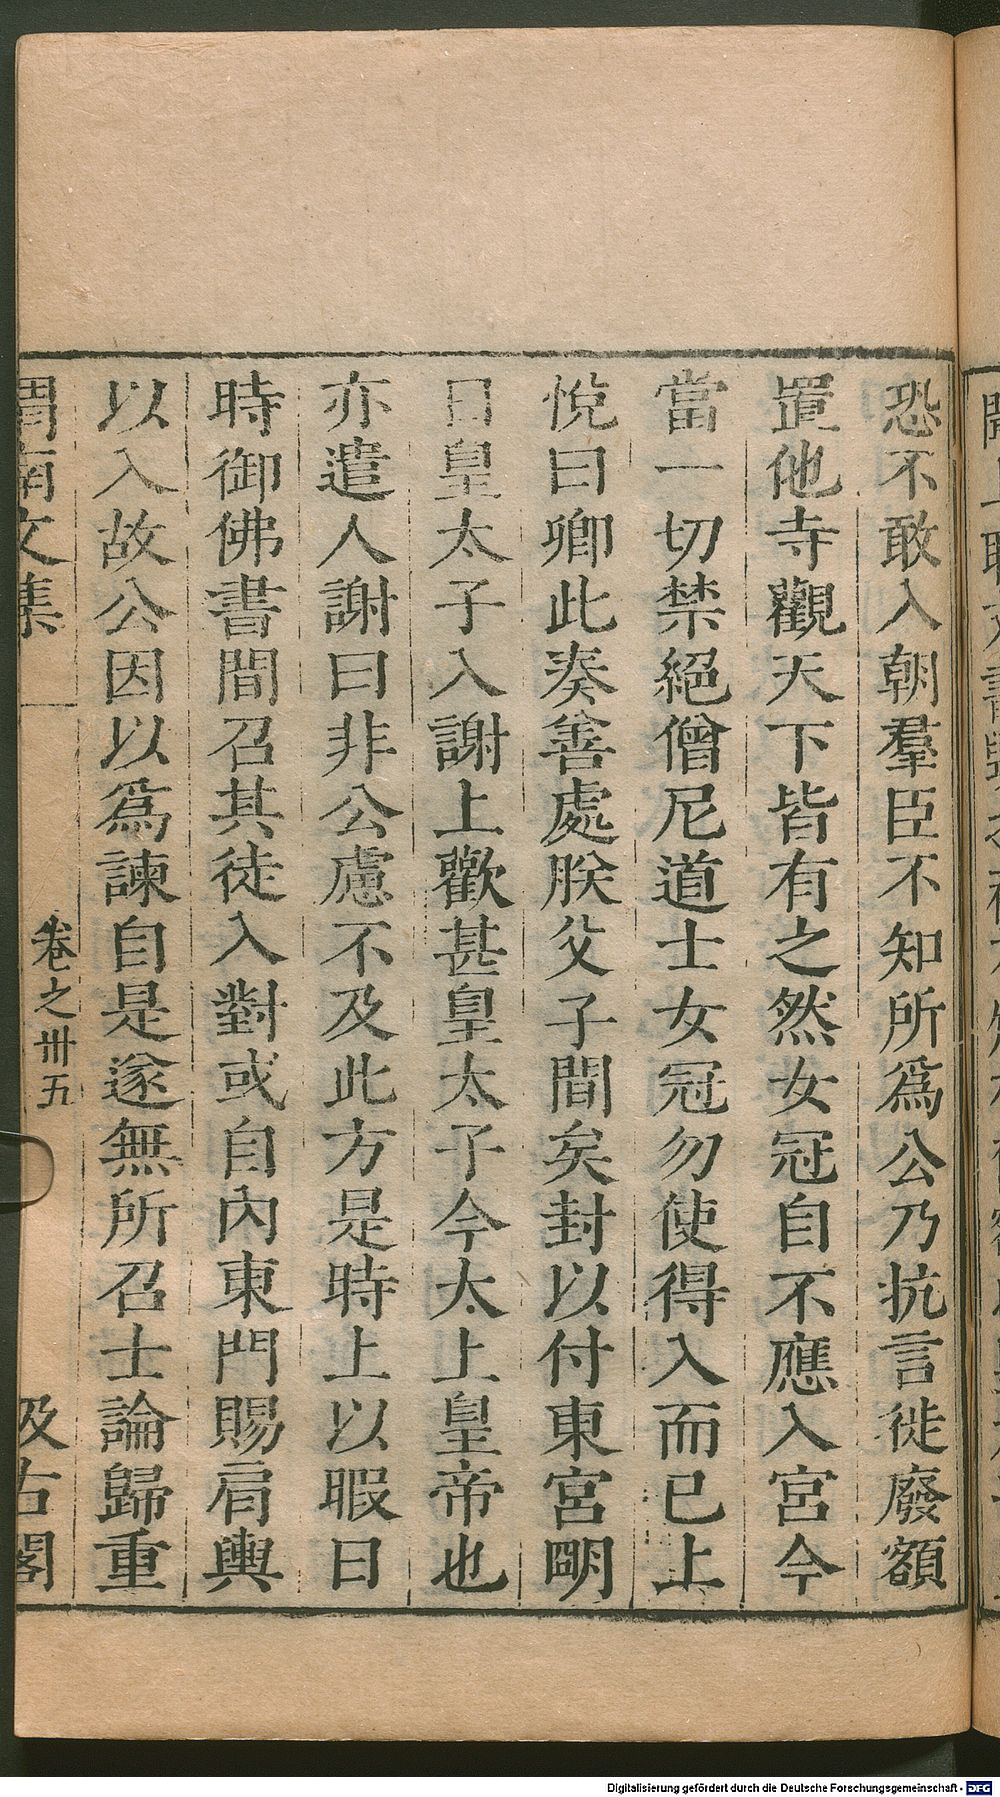 恐不敢入朝羣臣不知所爲公乃抗言徙廢額
置他寺觀天下皆有之然女冠自不應入宮今
當一切禁絕僧尼道士女冠勿使得入而已上
悅曰卿此奏善處朕父子間矣封以付東宮明
日皇太子入謝上歡甚皇太子今太上皇帝也
亦遣人謝曰非公慮不及此方是時上以暇日
時御佛書間召其徒入對或自內東門賜肩輿
以入故公因以爲諫自是遂無所召士論歸重
渭南文集
卷之卅五
汲古閣
Digitalisierung gefördert durch die Deutsche Forschungsgemeinschaft - DFG